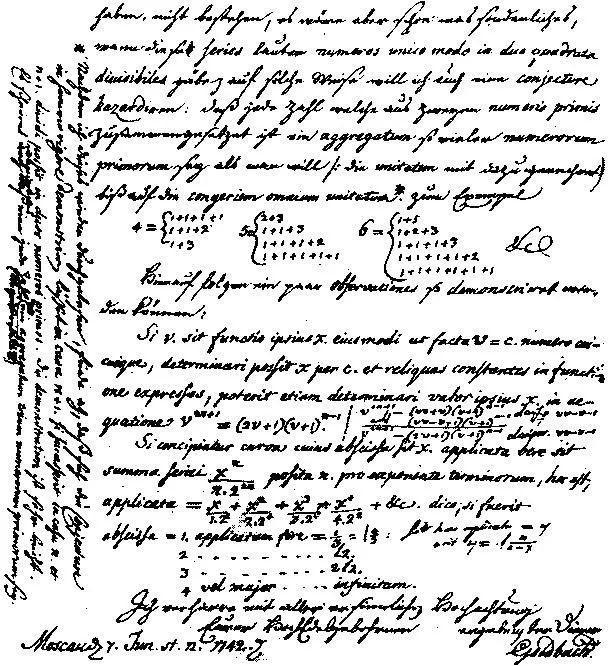 haben, nicht bestehen, es wäre aber schon was sonderliches,
wann diese series lauter numeros unico modo in duo quadrata
divisibiles gäbe, auf solche Weise will ich auch eine conjecture
hazardiren: daß jede Zahl welche aus zweyen numeris primis
zusammengesetzet ist ein aggregatum so vieler numerorum
primorum sey als man will /: die unitatem mit dazu gerechnet
biß auf die congeriem omnium unitatum * zum Exempel
4 = { 1+1+1+1
1+1+2
1+3
5 = { 2+3
1+1+3
1+1+1+2
1+1+1+1+1
6 = { 1+5
1+2+3
1+1+1+3
1+1+1+1+2
1+1+1+1+1+1
&c
Hierauf folgen ein paar observationes so demonstriret werden
den können:
Si v. sit functio ipsius x. eiusmodi ut facta v = c. numero cuicunque,
determinari possit x per c. et reliquas constantes in functione
expressas, poterit etiam determinari valor ipsius x. in aequatione
Si concipiatur curva cuius abscissa sit x. applicata vero sit
summa seriei x^n / n.2^2n posita n. pro exponente terminorum, hoc est,
applicata = + + + + &c. dico, si fuerit
abscissa = 1. applicatam fore =
2 l2.
3 2l2.
4 vel major infinitam.
Ich verharre mit aller ersinnlichen Hochachtung
Eurer HochEdelgebohrnen ergebenster Diener
Moscau 7. Jun. st. n. 1742. Goldbach.
* Nachdem ich dieses wieder durchgelesen, finde ich daß sich die Conjecture
in summo rigore demonstriren lässet in casu n+1. si successerit in casu n. et
n+1. dividi possit in duos numeros primos. Die demonstration ist sehr leicht.
Es scheinet wenigstens daß eine jede Zahl ein aggregatum trium numerorum primorum sey.